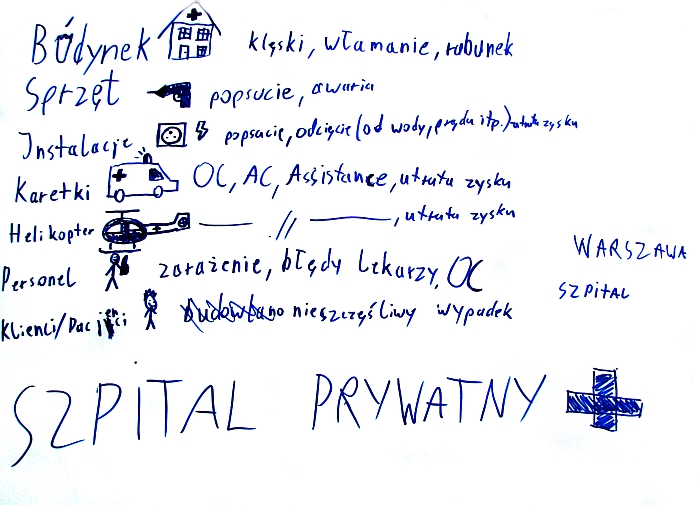 Budynek klęski, włamanie, rabunek
Sprzęt popsucie, awaria
Instalacje popsucie, odcięcie (od wody, prądu itp.) utrata zysku
Karetki OC, AC, Assistance, utrata zysku
Helikopter —— .//. ——, utrata zysku
Personel zarażenie, błędy lekarzy, OC
Klienci/Pacjenci no nieszczęśliwy wypadek
WARSZAWA
SZPITAL
SZPITAL PRYWATNY